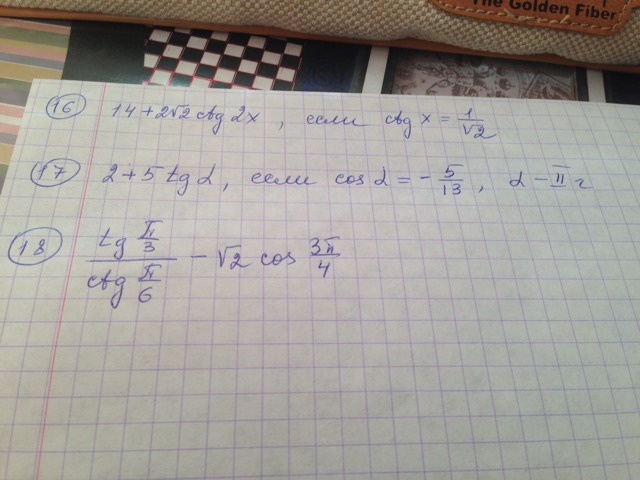 The Golden Fiber
16 14 + 2√2 ctg 2x , если ctg x = 1/√2
17 2 + 5 tg α, если cos α = - 5/13, α - II г
18 tg π/3 / ctg π/6 - √2 cos 3π/4